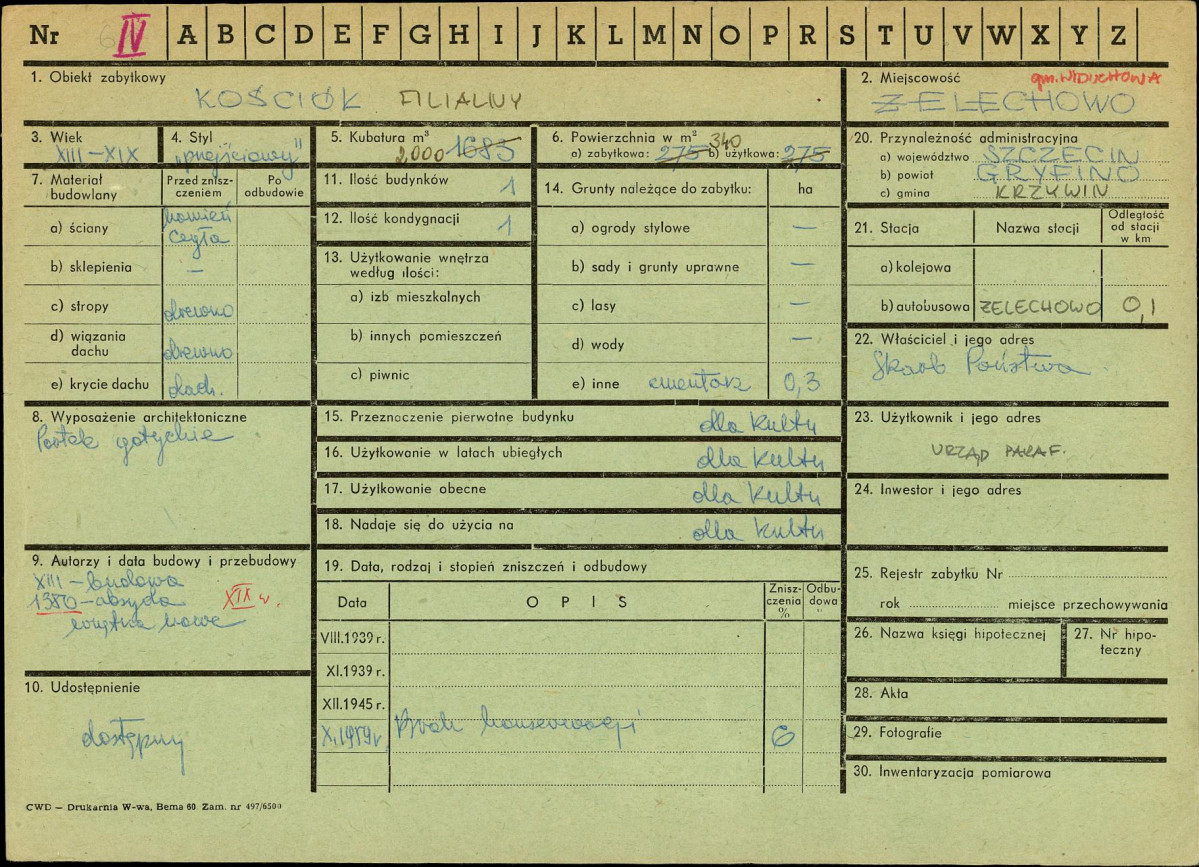 Nr IV A B C D E F G H I J K L M N O P R S T U V W X Y Z
1. Obiekt zabytkowy
KOŚCIÓŁ FILIALNY
2. Miejscowość
gm. WIDUCHOWA
ŻELECHOWO
3. Wiek
XIII – XIX
4. Styl
„przejściowy"
5. Kubatura m³
2,000 1685
6. Powierzchnia w m²
340
a) zabytkowa: 275 b) użytkowa: 275
20. Przynależność administracyjna
a) województwo SZCZECIN
b) powiat GRYFINO
c) gmina KRZYWIN
7. Materiał budowlany
Przed zniszczeniem
Po odbudowie
a) ściany kamień cegła
b) sklepienia –
c) stropy drewno
d) wiązania dachu drewno
e) krycie dachu dach.
11. Ilość budynków 1
12. Ilość kondygnacji 1
13. Użytkowanie wnętrza według ilości:
a) izb mieszkalnych
b) innych pomieszczeń
c) piwnic
14. Grunty należące do zabytku: ha
a) ogrody stylowe –
b) sady i grunty uprawne –
c) lasy –
d) wody –
e) inne cmentarz 0,3
21. Stacja Nazwa stacji Odległość od stacji w km
a) kolejowa
b) autobusowa ŻELECHOWO 0,1
22. Właściciel i jego adres
Skarb Państwa
8. Wyposażenie architektoniczne
Portek gotyckie
15. Przeznaczenie pierwotne budynku dla kultu
16. Użytkowanie w latach ubiegłych dla kultu
17. Użytkowanie obecne dla kultu
18. Nadaje się do użycia na dla kultu
23. Użytkownik i jego adres
URZĄD PARAF.
24. Inwestor i jego adres
9. Autorzy i data budowy i przebudowy
XIII – budowa
1380 – absyda XIX w.
19. Data, rodzaj i stopień zniszczeń i odbudowy
Data OPIS Zniszczenia % Odbudowa "
VIII.1939 r.
XI.1939 r.
XII.1945 r.
X.1959 r Brak konserwacji 6
10. Udostępnienie
dostępny
25. Rejestr zabytku Nr
rok miejsce przechowywania
26. Nazwa księgi hipotecznej
27. Nr hipoteczny
28. Akta
29. Fotografie
30. Inwentaryzacja pomiarowa
CWD – Drukarnia W-wa, Bema 60. Zam. nr 497/6500